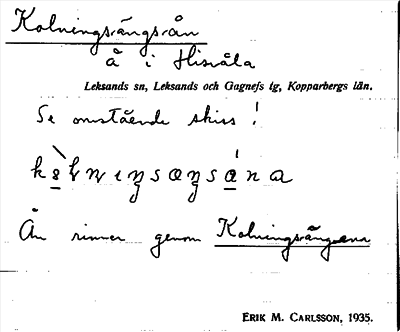 Kolningsängsån
å i Hisvåla
Leksands sn, Leksands och Gagnefs tg, Kopparbergs län.
Se omstående skiss!
Ån rinner genom Kolningsängarna
ERIK M. CARLSSON, 1935.